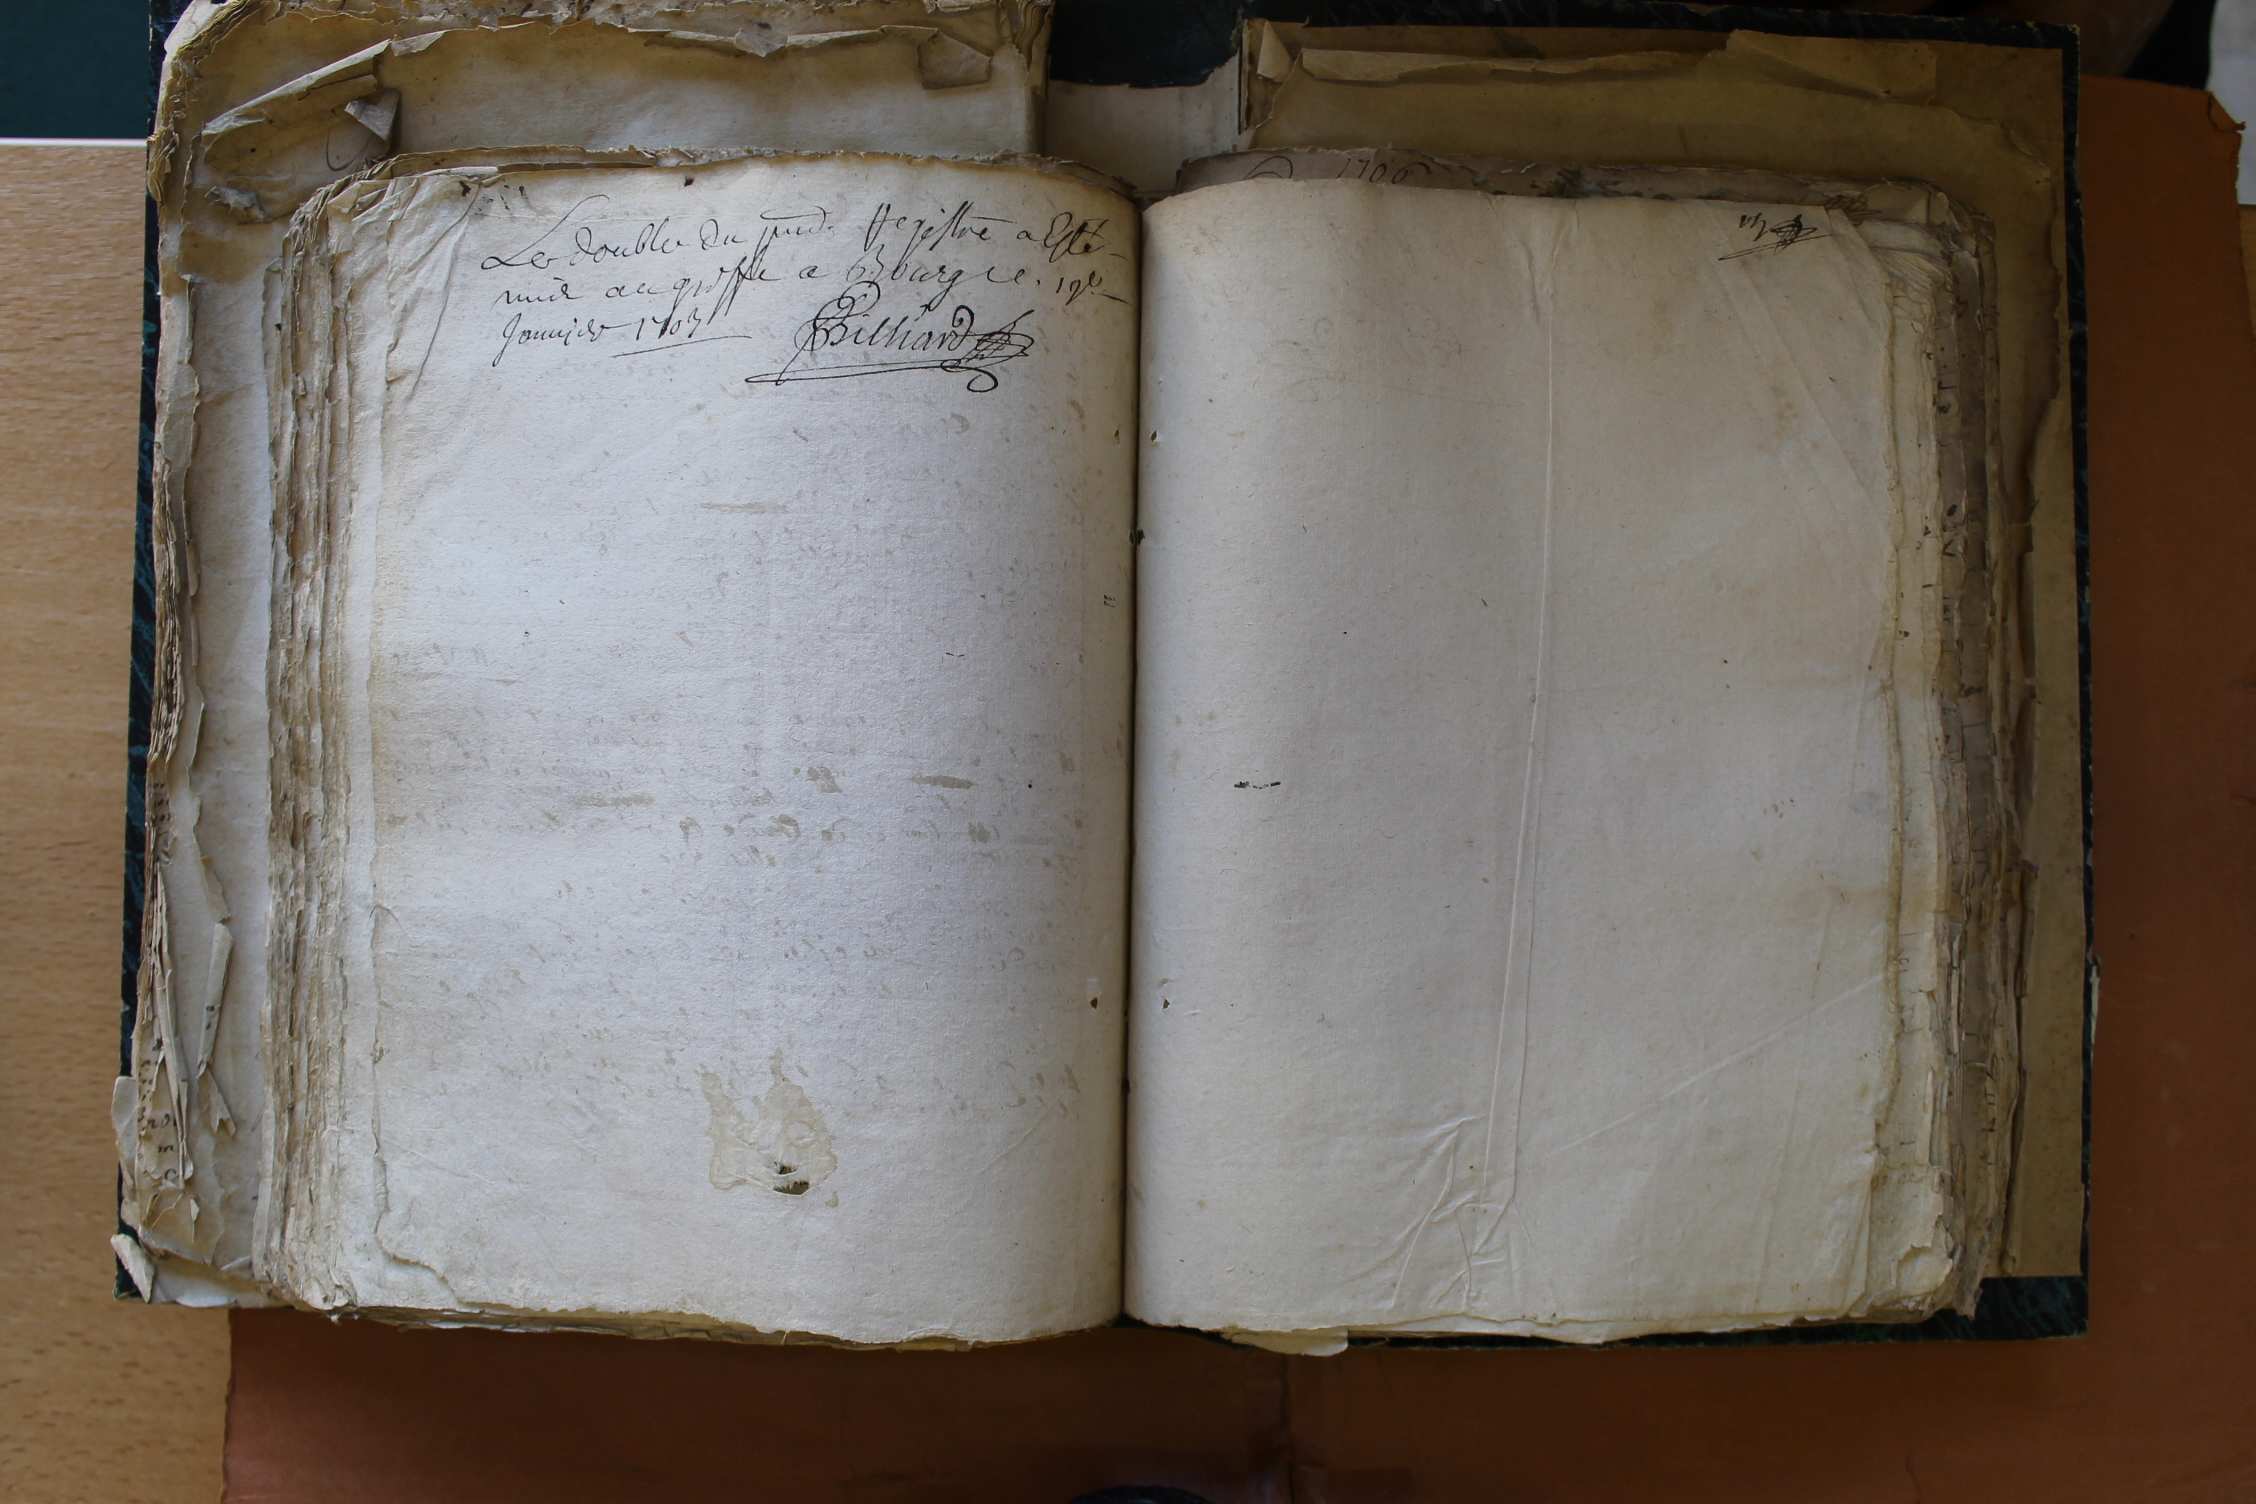 Le double du pnt Registre a Esté
mis au greffe a Bourg ce 19e
Janvier 1703
Billiard
1706